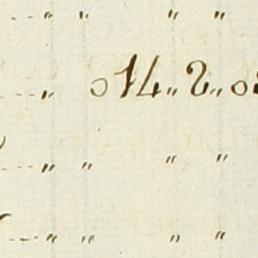 --- " " " "
--- " 014 " 2 " 0
--- " " " "
--- " " " "